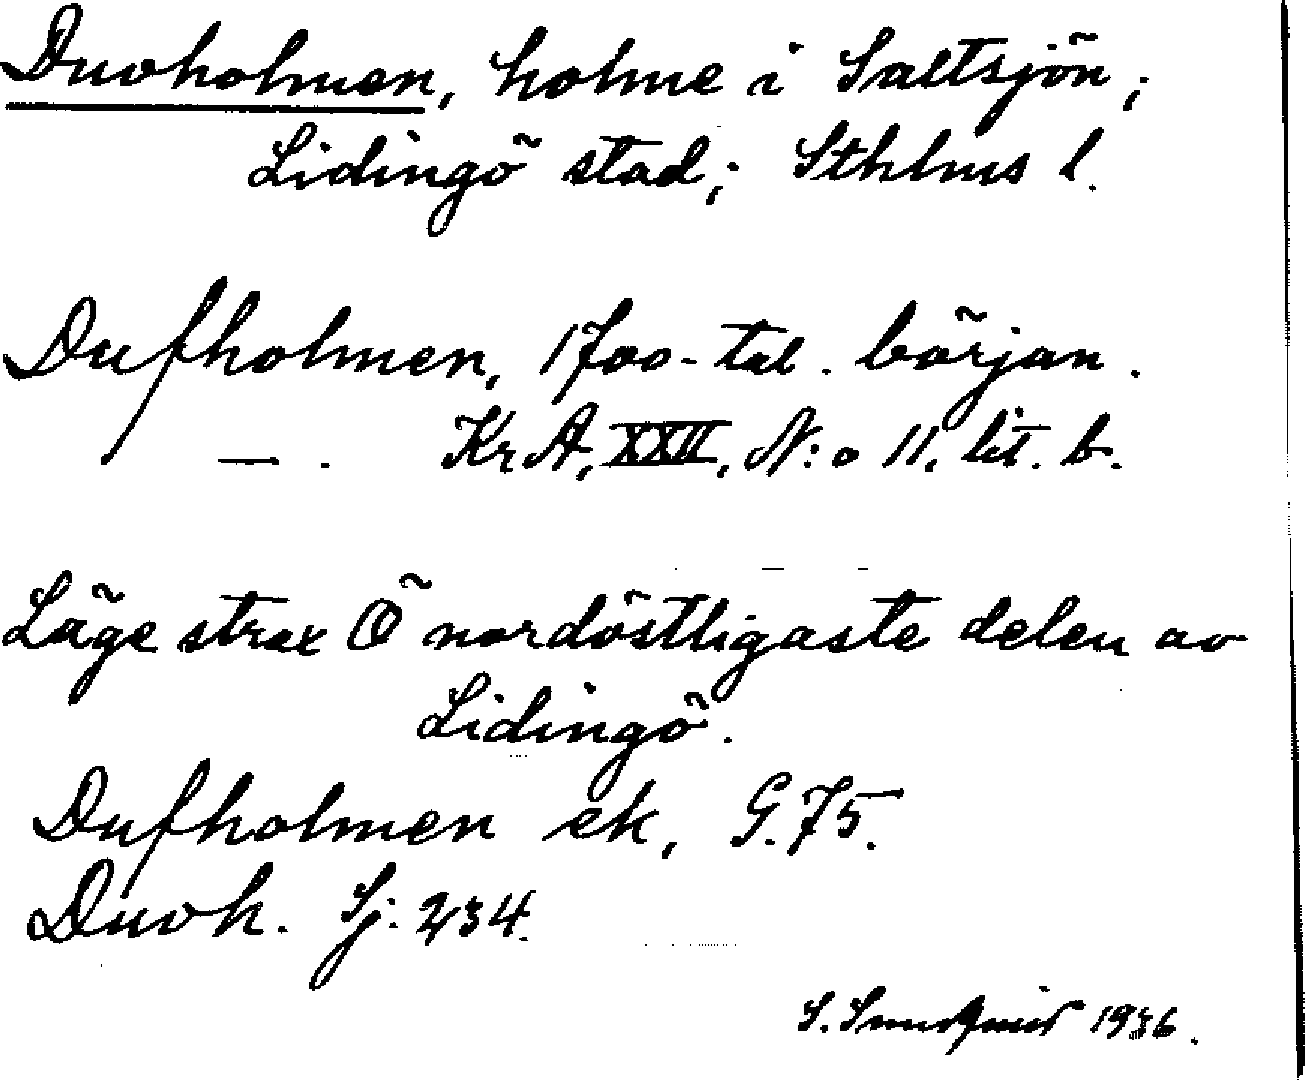 Duvholmen, holme i Saltsjön;
Lidingö stad; Sthlms l.
Dufholmen, 1700-tal. början.
— . KrA, XXII, N:o 11, lit. b.
Läge strax Ö nordöstligaste delen av
Lidingö.
Dufholmen ek, G.75.
Duvh. Sj. 234.
S. 1936.